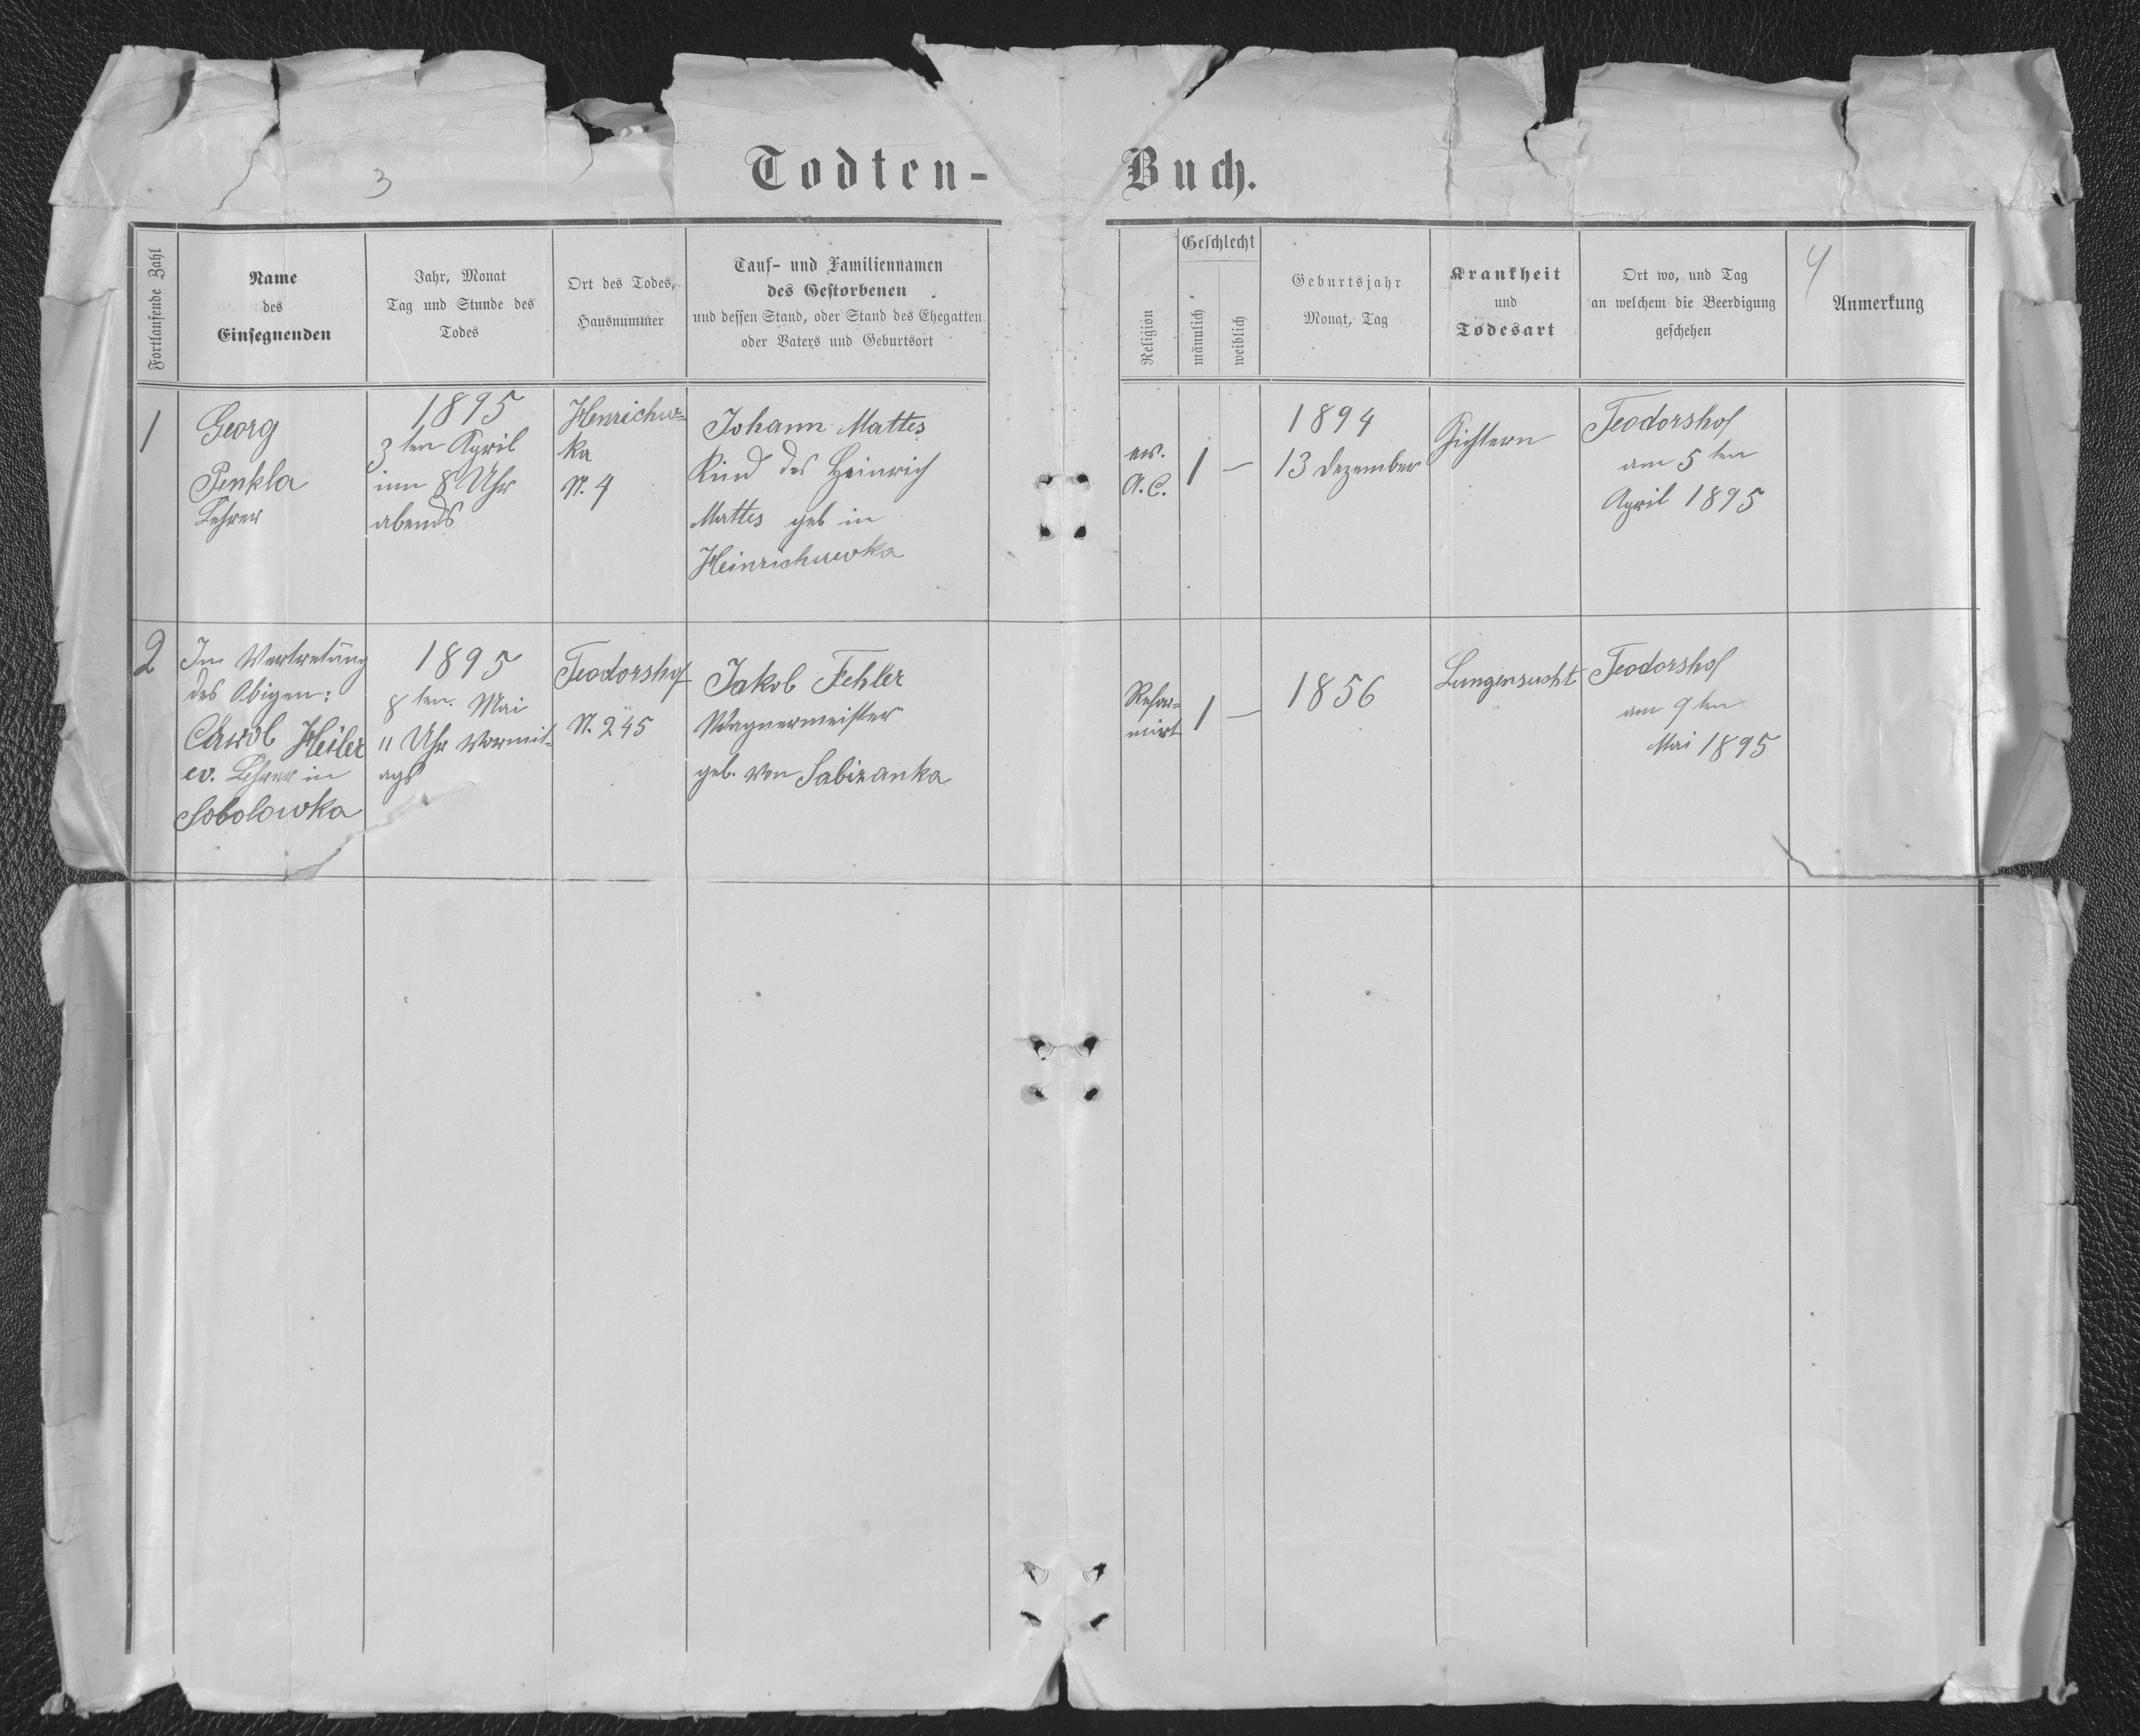 3
Todten-Buch.
Fortlaufende Zahl
Name
des
Einsegnenden
Jahr, Monat
Tag und Stunde des
Todes
Ort des Todes,
Hausnummer
Tauf- und Familiennamen
des Gestorbenen
und dessen Stand, oder Stand des Ehegatten
oder Vaters und Geburtsort
Religion
Geschlecht
männlich
weiblich
Geburtsjahr
Monat, Tag
Krankheit
und
Todesart
Ort wo, und Tag
an welchem die Beerdigung
geschehen
4
Anmerkung
1
Georg
Penkla
Lehrer
1895
3ten April
um 8 Uhr
abends
Henrichuw=
ka
N. 4
Johann Mattes
Kind des Heinrich
Mattes geb in
Heinrichuwka
ev.
A. C.
1
—
1894
13 Dezember
Gichtern
Teodorshof
am 5ten
April 1895
2
In Vertretung
des Obigen:
Carol Heiler
ev. Lehrer in
Sobolowka
1895
8ten. Mai
11 Uhr Vormit-
ags
Teodorshof
N. 245
Jakob Fehler
Wagnermeister
geb. von Sabizanka
Refor=
mirt
1
—
1856
Lungensucht
Teodorshof
am 9ten
Mai 1895